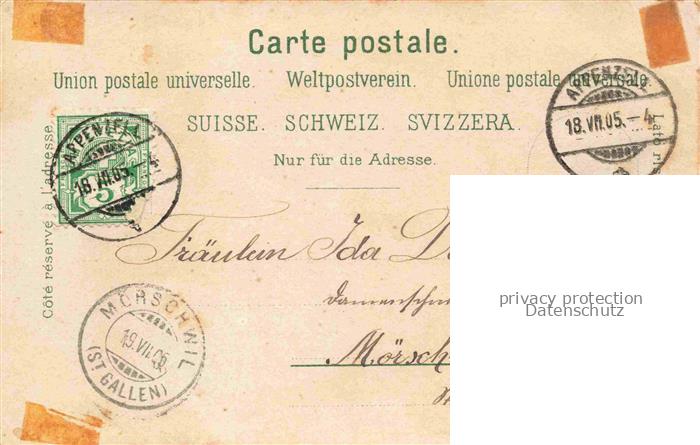 Carte postale.
Union postale universelle. Weltpostverein. Unione postale universale
SUISSE. SCHWEIZ. SVIZZERA.
Nur für die Adresse.
Côté réservé à l'adresse.
Lato ris
APPENZELL
18.VII.05.-4
5
APPENZELL
18.VII.05.-4
Fräulein Ida D
Damenschn
Mörsch
MÖRSCHWIL
19.VII.05
(ST. GALLEN)
privacy protection
Datenschutz